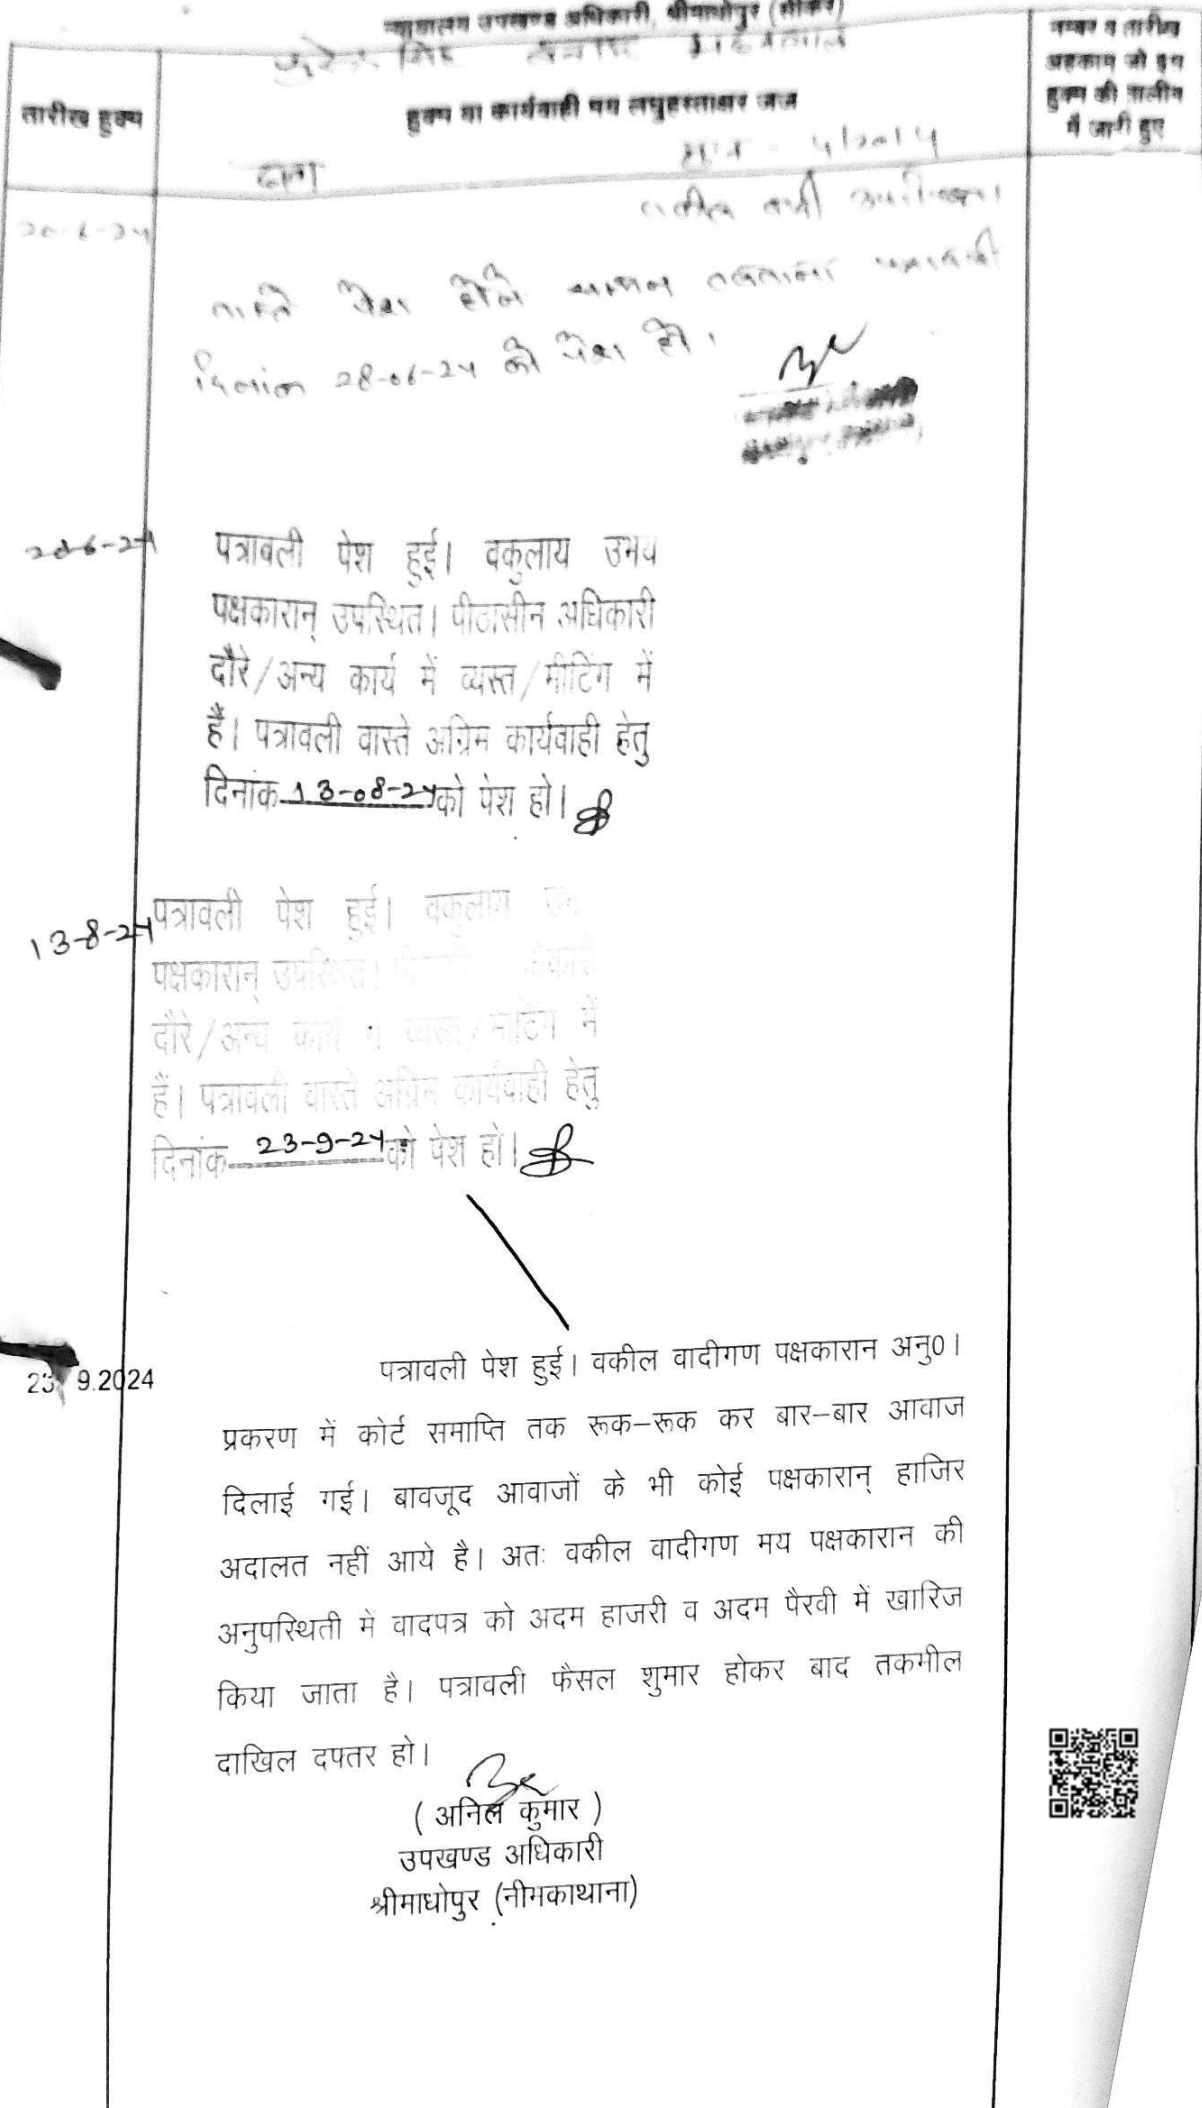 न्यायालय उपखण्ड अधिकारी, श्रीमाधोपुर (सीकर)
तारीख हुक्म
हुक्म या कार्यवाही मय लघुहस्ताक्षर जज
नम्बर व तारीख
अहकाम जो इस
हुक्म की तालीम
में जारी हुए
4/2014
20-6-24
वास्ते पेश होने
दिनांक 28-06-24 को पेश हो।
28-6-24
पत्रावली पेश हुई। वकुलाय उभय
पक्षकारान् उपस्थित। पीठासीन अधिकारी
दौरे/अन्य कार्य में व्यस्त/मीटिंग में
हैं। पत्रावली वास्ते अग्रिम कार्यवाही हेतु
दिनांक 13-08-24 को पेश हो।
13-8-24
पत्रावली पेश हुई। वकुलाय
पक्षकारान् उपस्थित।
दौरे/अन्य कार्य व्यस्त/मीटिंग में
हैं। पत्रावली वास्ते अग्रिम कार्यवाही हेतु
दिनांक 23-9-24 को पेश हो।
23.9.2024
पत्रावली पेश हुई। वकील वादीगण पक्षकारान अनु0।
प्रकरण में कोर्ट समाप्ति तक रूक-रूक कर बार-बार आवाज
दिलाई गई। बावजूद आवाजों के भी कोई पक्षकारान् हाजिर
अदालत नहीं आये है। अतः वकील वादीगण मय पक्षकारान की
अनुपस्थिती में वादपत्र को अदम हाजरी व अदम पैरवी में खारिज
किया जाता है। पत्रावली फैसल शुमार होकर बाद तकमील
दाखिल दफ्तर हो।
( अनिल कुमार )
उपखण्ड अधिकारी
श्रीमाधोपुर (नीमकाथाना)